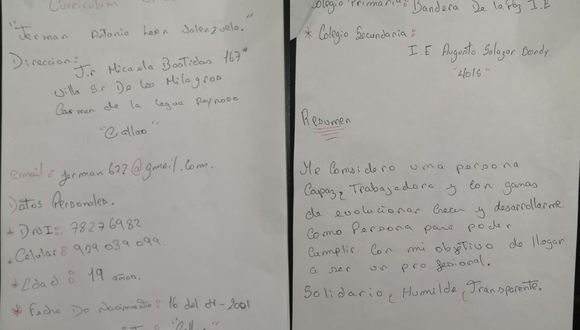 Curriculum
"Jerman Antonio Leon Valenzuela."
Direccion:
J.r Micaela Bastidas 167"
Villa Sr De Los Milagros
Carmen de la Legua Reynoso
"Callao"
email: jerman622@gmail.com.
Datos Personales.
* DNI: 78276982
* Celular: 909 039 099.
* Edad: 19 años.
* Fecha De Nacimiento: 16 del 01-2001
"Callao"
Colegio Primaria: Bandera De la Paz I.E
* Colegio Secundaria:
I.E Augusto Salazar Bondy
"4015"
Resumen
Me Considero una persona
Capaz, Trabajadora y con ganas
de evolucionar crecer y desarrollarme
Como Persona para poder
Cumplir Con mi objetivo de llegar
a ser un profesional.
Solidario, Humilde, Transparente.